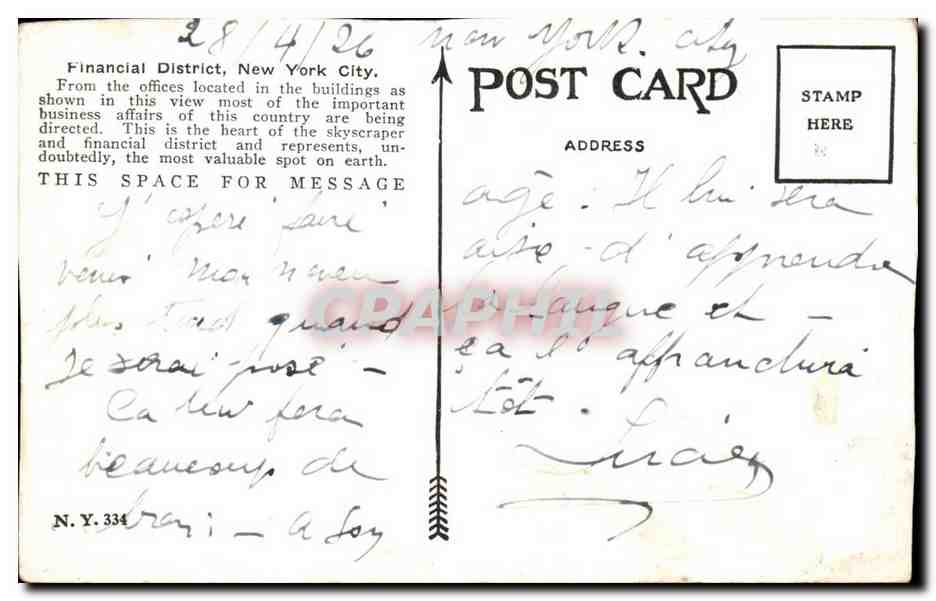 28/4/26 New York. City
Financial District, New York City.
From the offices located in the buildings as
shown in this view most of the important
business affairs of this country are being
directed. This is the heart of the skyscraper
and financial district and represents, un-
doubtedly, the most valuable spot on earth.
THIS SPACE FOR MESSAGE
J'espere faire
venir mon neveu
plus tard quand
je serai posé -
Ca lui fera
beaucoup de
- a son
N. Y. 334
POST CARD
ADDRESS
STAMP
HERE
age : Il lui sera
aise d'apprendre
la langue et -
ça l'affranchira
tôt.
Lucien
CPAPHIL